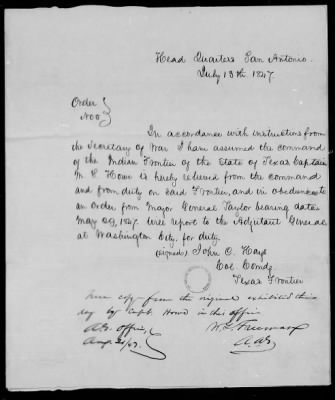 Head Quarters San Antonio.
July 13th. 1847.
Order
No
In accordance with instructions from
the Secretary of War I have assumed the command
of the Indian Frontier of the State of Texas. Captain
M. S. Howe is hereby relieved from the command
and from duty on said Frontier, and in obedience to
an order from Major General Taylor bearing date
May 29, 1847. Will report to the Adjutant General
at Washington City, for duty.
(signed) John C. Hays
Col Comdg
Texas Frontier
True copy from the original exhibited this
day by Capt. Howe in this office
A. G. Office,
Aug. 20/47.
A. A. G.